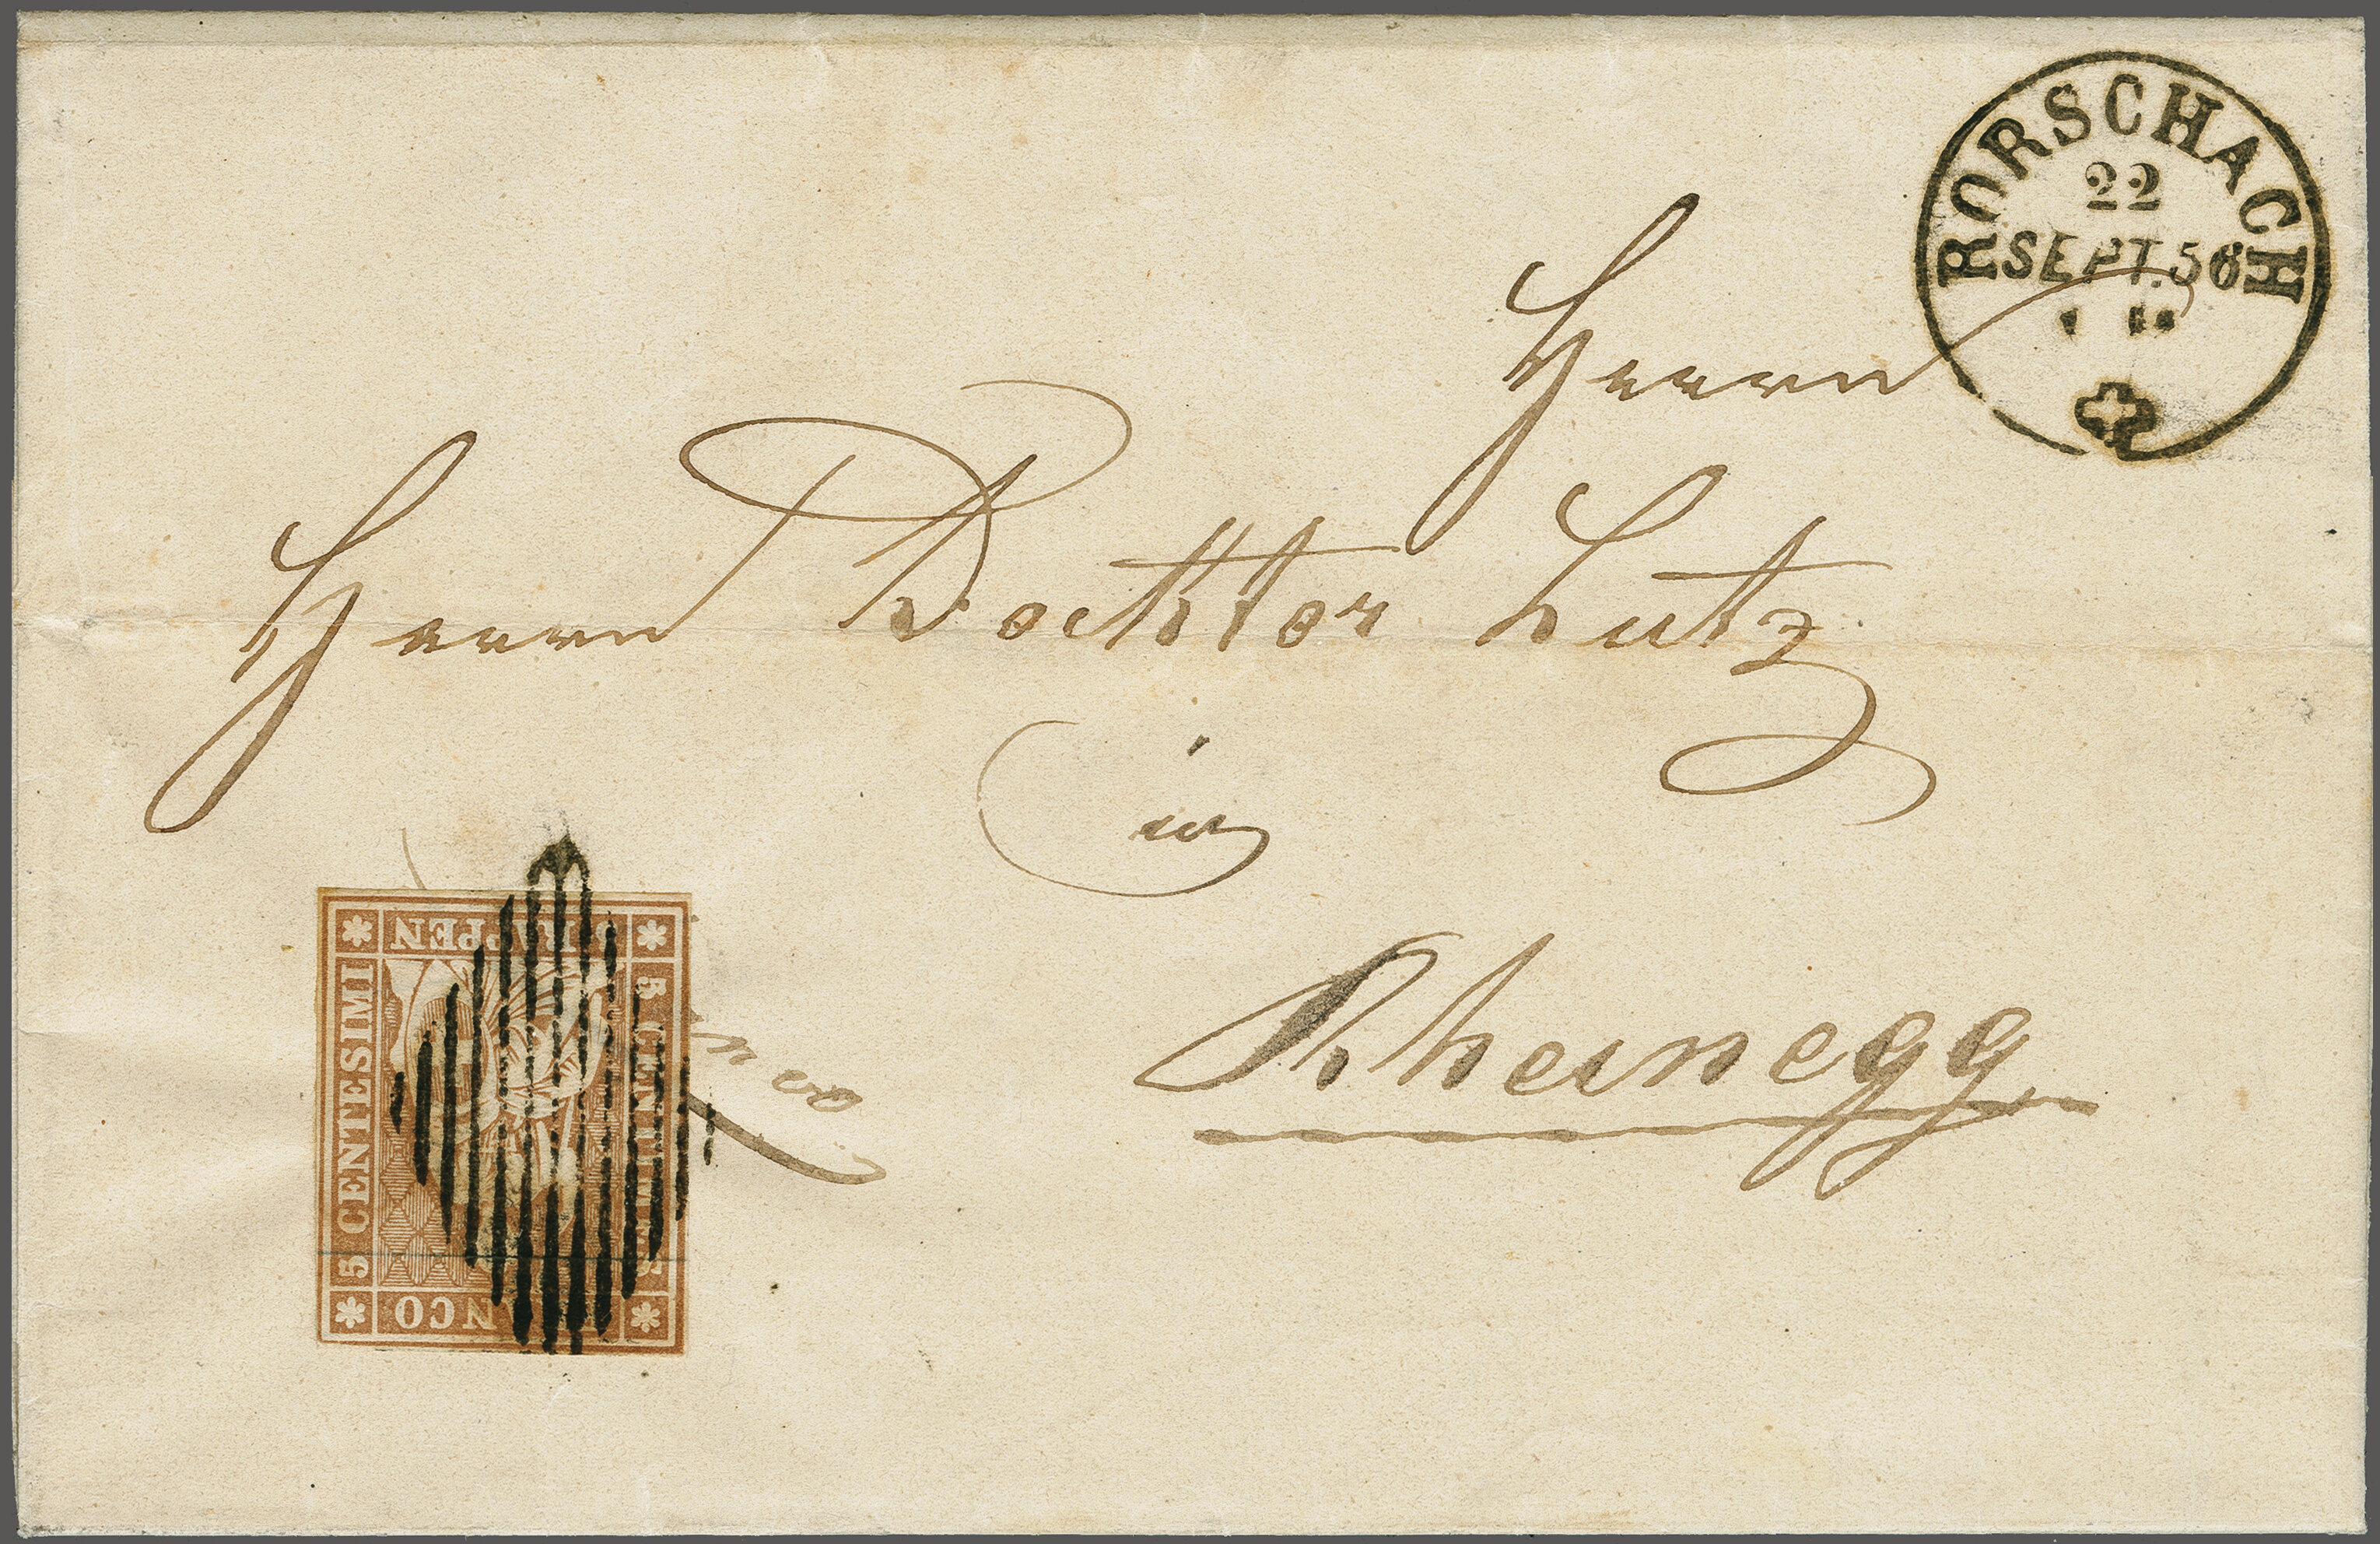 RORSCHACH
22
SEPT. 56
Herrn
Herrn Docktor Lutz
in
Rheinegg
5 RAPPEN
5 CENTESIMI
5 CENTIMES
FRANCO